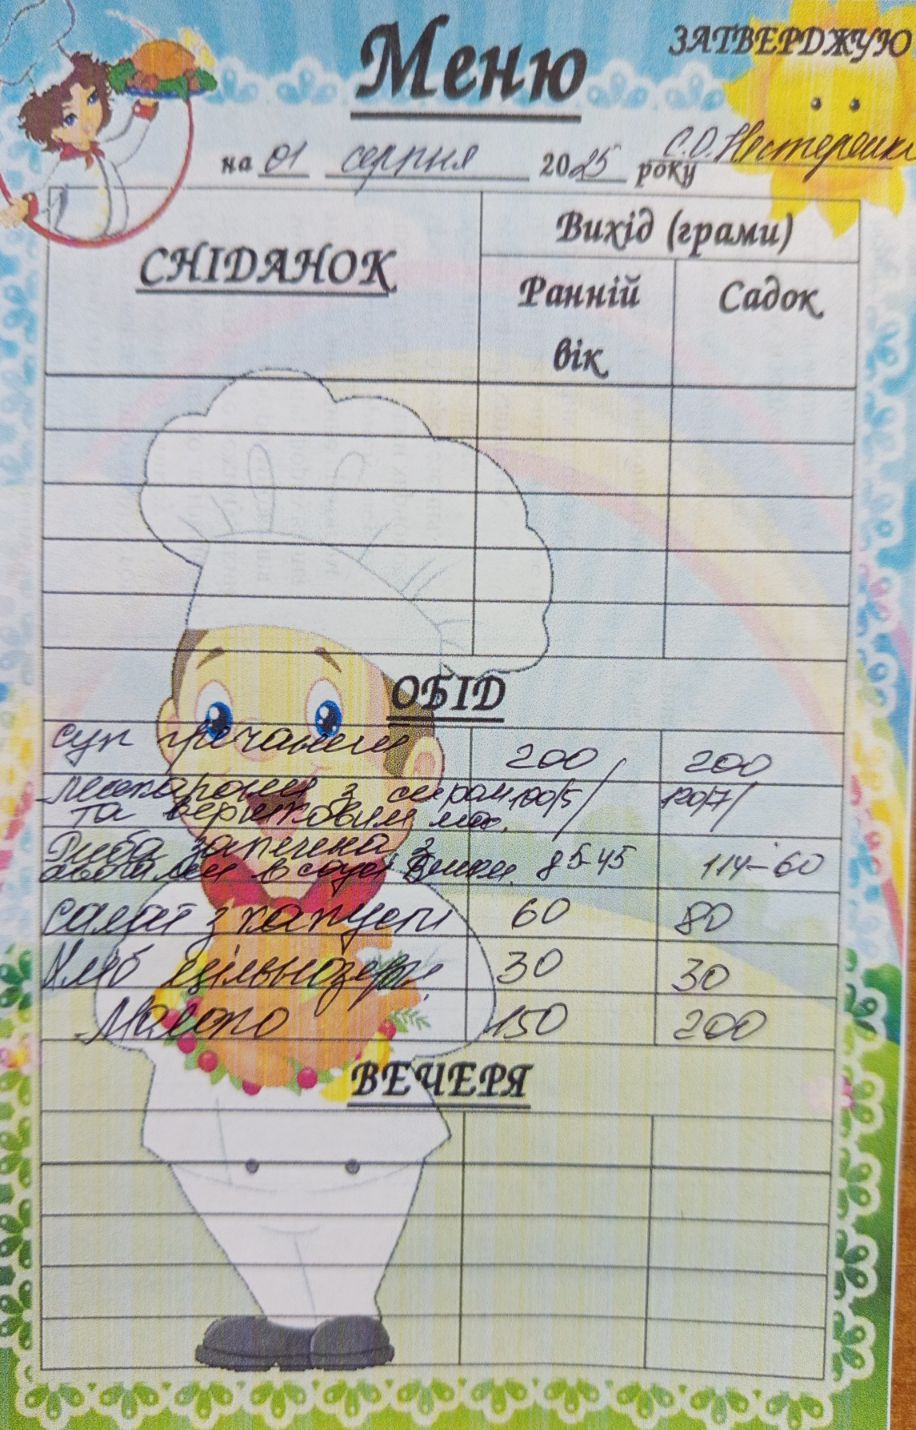 Меню
ЗАТВЕРДЖУЮ
на 01 серпня 2025 року С.О. Нестеренко
СНІДАНОК
Вихід (грами)
Ранній вік
Садок
ОБІД
суп гречаний 200 200
макарони з сиром 100/5/ 120/7/
та вершковим мас.
Риба запечена з
овочами в соусі 85-45 114-60
салат з капусти 60 80
Хліб цільнозерн. 30 30
Молоко 150 200
ВЕЧЕРЯ